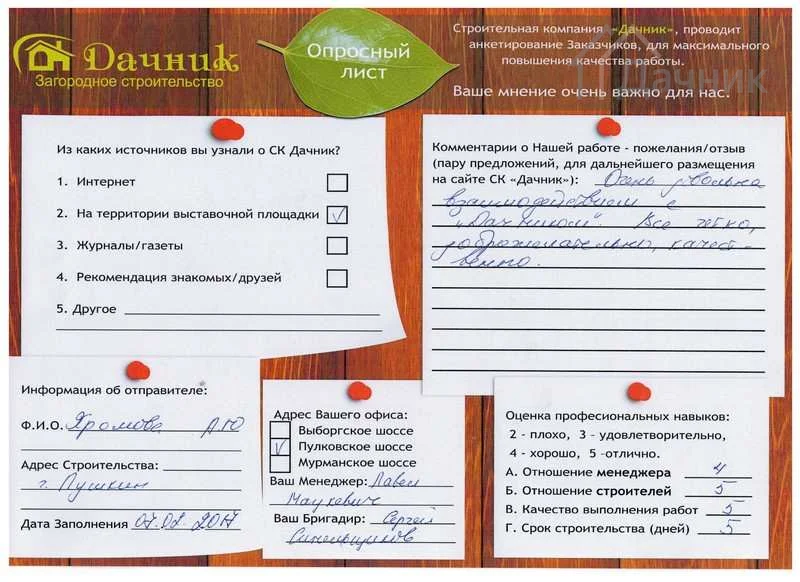 Дачник
Загородное строительство
Опросный
лист
Строительная компания «Дачник», проводит
анкетирование Заказчиков, для максимального
повышения качества работы.
Ваше мнение очень важно для нас.
Дачник
Из каких источников вы узнали о СК Дачник?
1. Интернет
2. На территории выставочной площадки
3. Журналы/газеты
4. Рекомендация знакомых/друзей
5. Другое
Комментарии о Нашей работе - пожелания/отзыв
(пару предложений, для дальнейшего размещения
на сайте СК «Дачник»): Очень довольна
взаимодействием с
„Дачником". Все чётко,
доброжелательны, качест-
венно.
Информация об отправителе:
Ф.И.О. Хромова А.Ю
Адрес Строительства:
г. Пушкин
Дата Заполнения 07.02.2017
Адрес Вашего офиса:
Выборгское шоссе
Пулковское шоссе
Мурманское шоссе
Ваш Менеджер: Павел
Маукевич
Ваш Бригадир: Сергей
Оценка профессиональных навыков:
2 - плохо, 3 - удовлетворительно,
4 - хорошо, 5 -отлично.
А. Отношение менеджера 4
Б. Отношение строителей 5
В. Качество выполнения работ 5
Г. Срок строительства (дней) 5